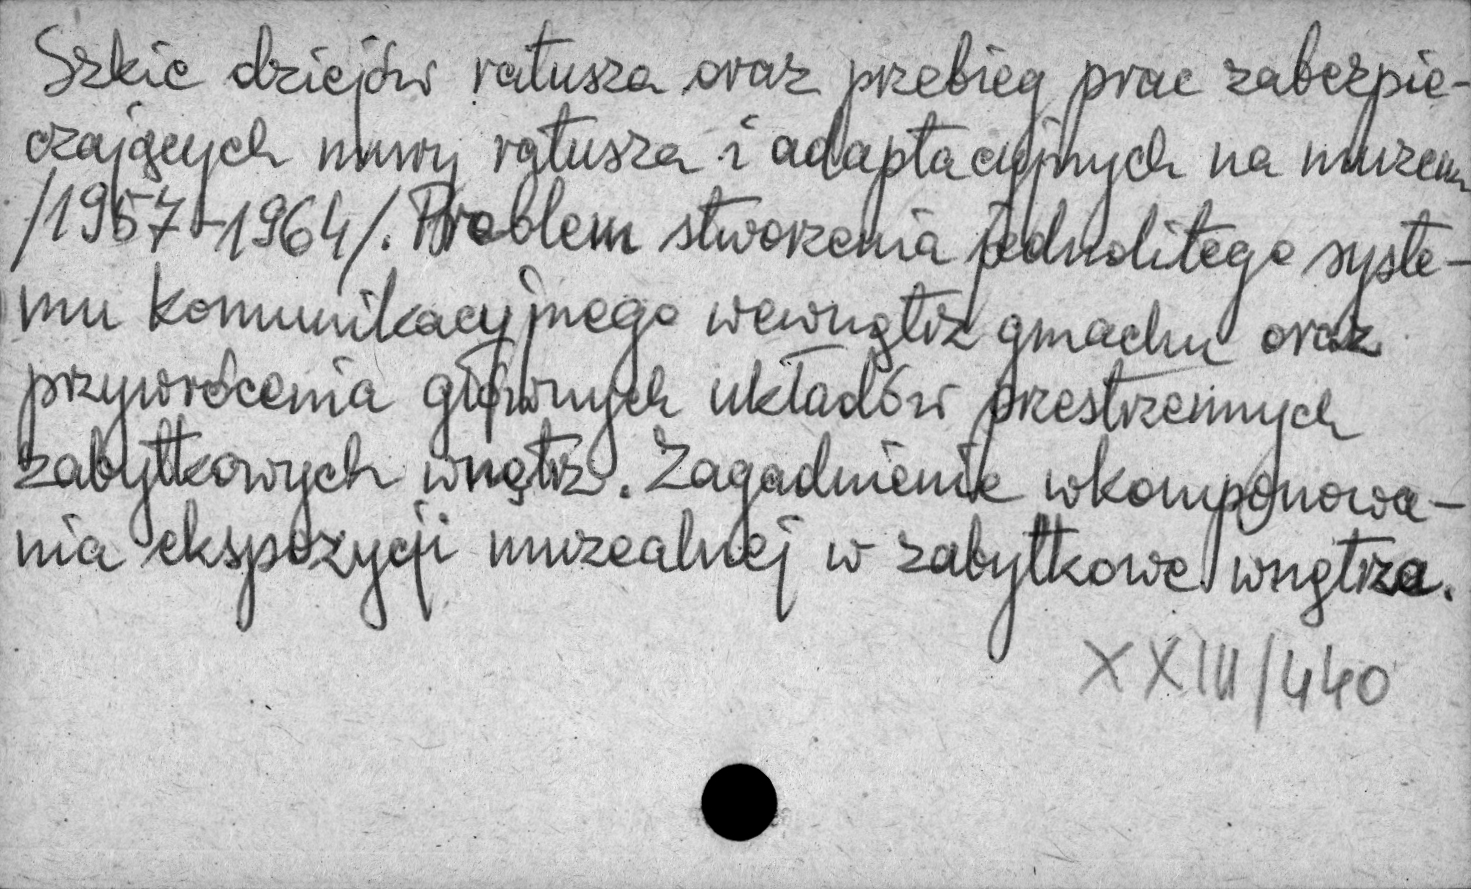 Szkic dziejów ratusza oraz przebieg prac zabezpie-
czających mury ratusza i adaptacyjnych na muzeum
/1957-1964/. Problem stworzenia jednolitego syste-
mu komunikacyjnego wewnątrz gmachu oraz
przywrócenia głównych układów przestrzennych
zabytkowych wnętrz. Zagadnienie wkomponowa-
nia ekspozycji muzealnej w zabytkowe wnętrza.
XXIII/440